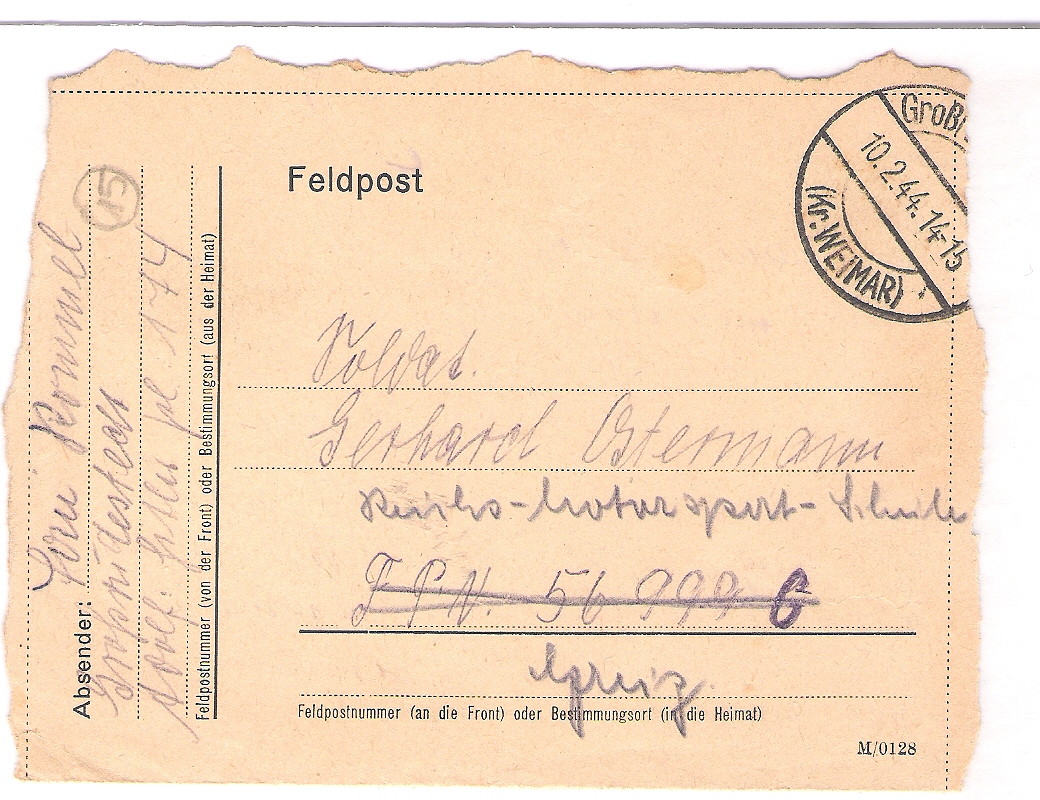 Großr
10.2.44.14-15
(Kr. WEIMAR)
Feldpost
Soldat.
Gerhard Ostermann
Reichs-Motorsport-Schule
F P N. 56 999 C
Greiz.
Feldpostnummer (an die Front) oder Bestimmungsort (in die Heimat)
M/0128
15
Rommel
Absender:
Großrudestedt
Adolf: Hitler 174
Feldpostnummer (von der Front) oder Bestimmungsort (aus der Heimat)